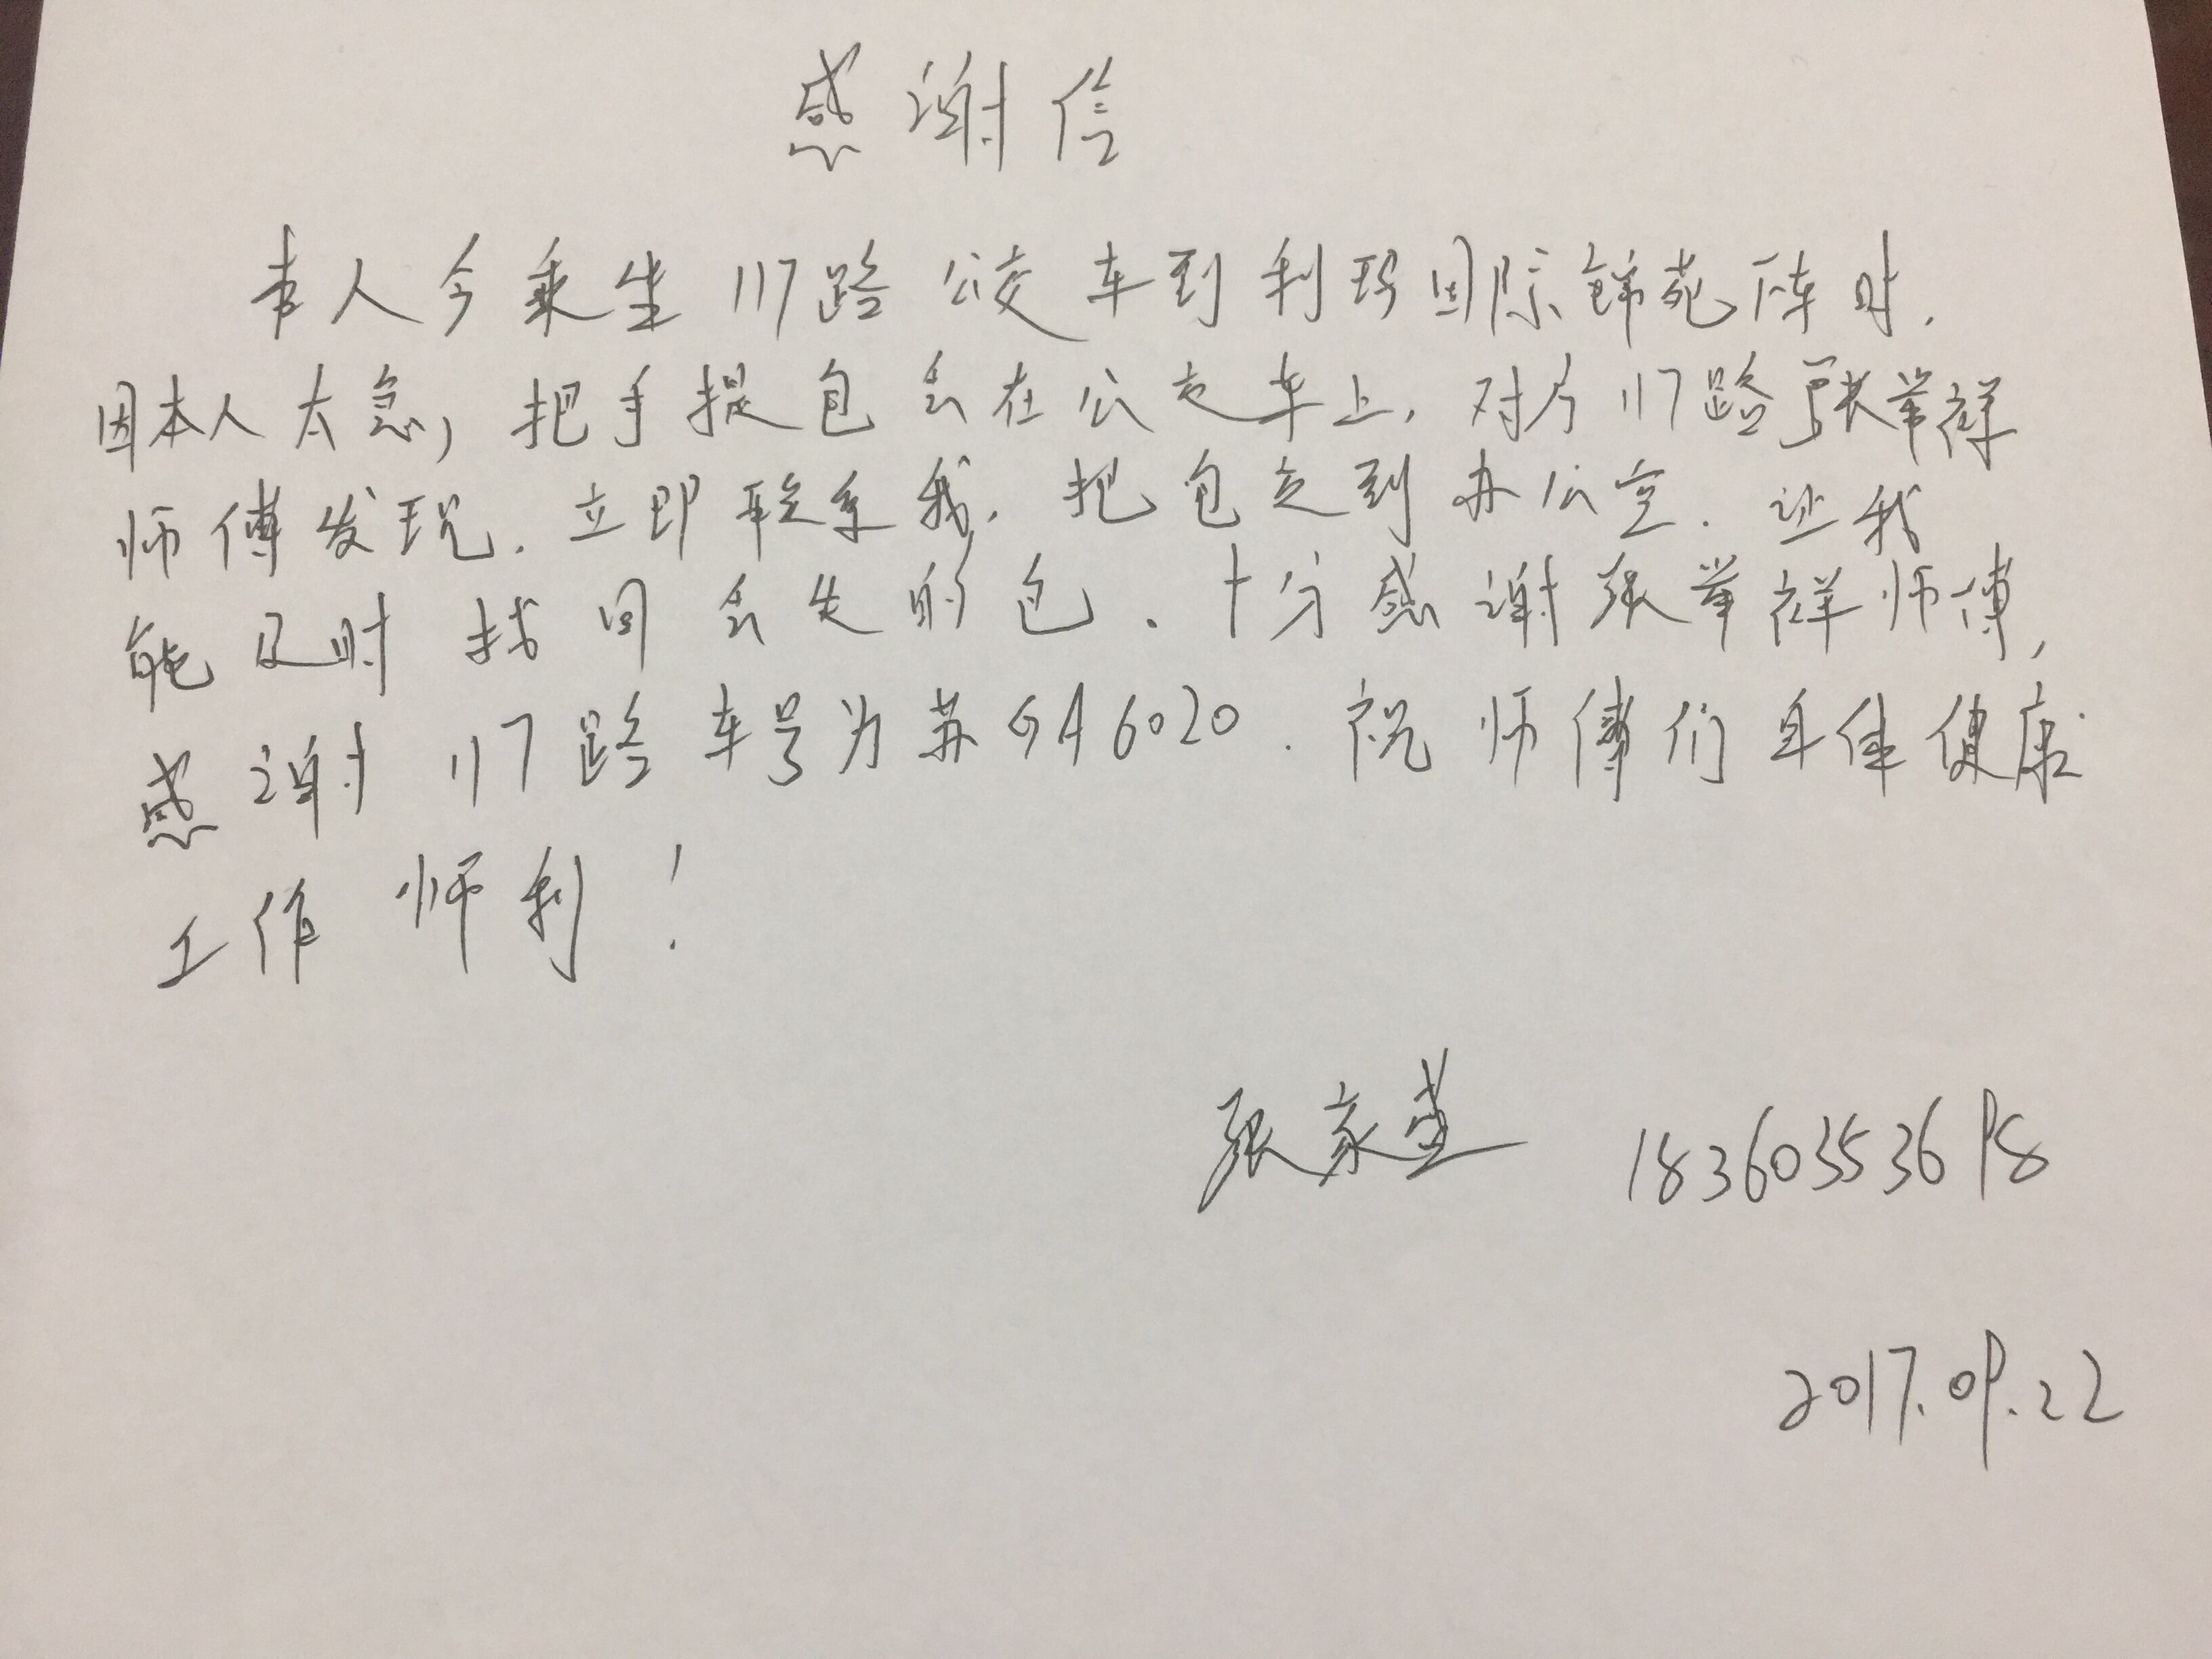 感谢信
本人今乘坐117路公交车到利玛国际锦苑下车时.
因本人太急,把手提包丢在公交车上.对方117路张举祥
师傅发现.立即联系我.把包送到办公室.让我
能及时找回丢失的包.十分感谢张举祥师傅,
感谢117路车号为苏GA6020.祝师傅们身体健康
工作师利!
张家 183603553698
2017.09.22